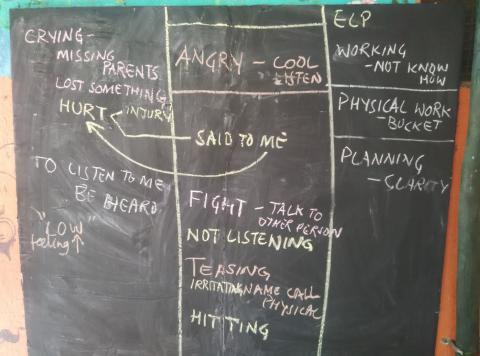 CRYING-
MISSING
PARENTS
LOST SOMETHING
HURT < INJURY
TO LISTEN TO ME
BE HEARD
"LOW"
feeling ↑
ANGRY - COOL
LISTEN
SAID TO ME
FIGHT - TALK TO
OTHER PERSON
NOT LISTENING
TEASING
IRRITATING NAME CALL
PHYSICAL
HITTING
ELP
WORKING
- NOT KNOW
HOW
PHYSICAL WORK
- BUCKET
PLANNING
- CLARITY